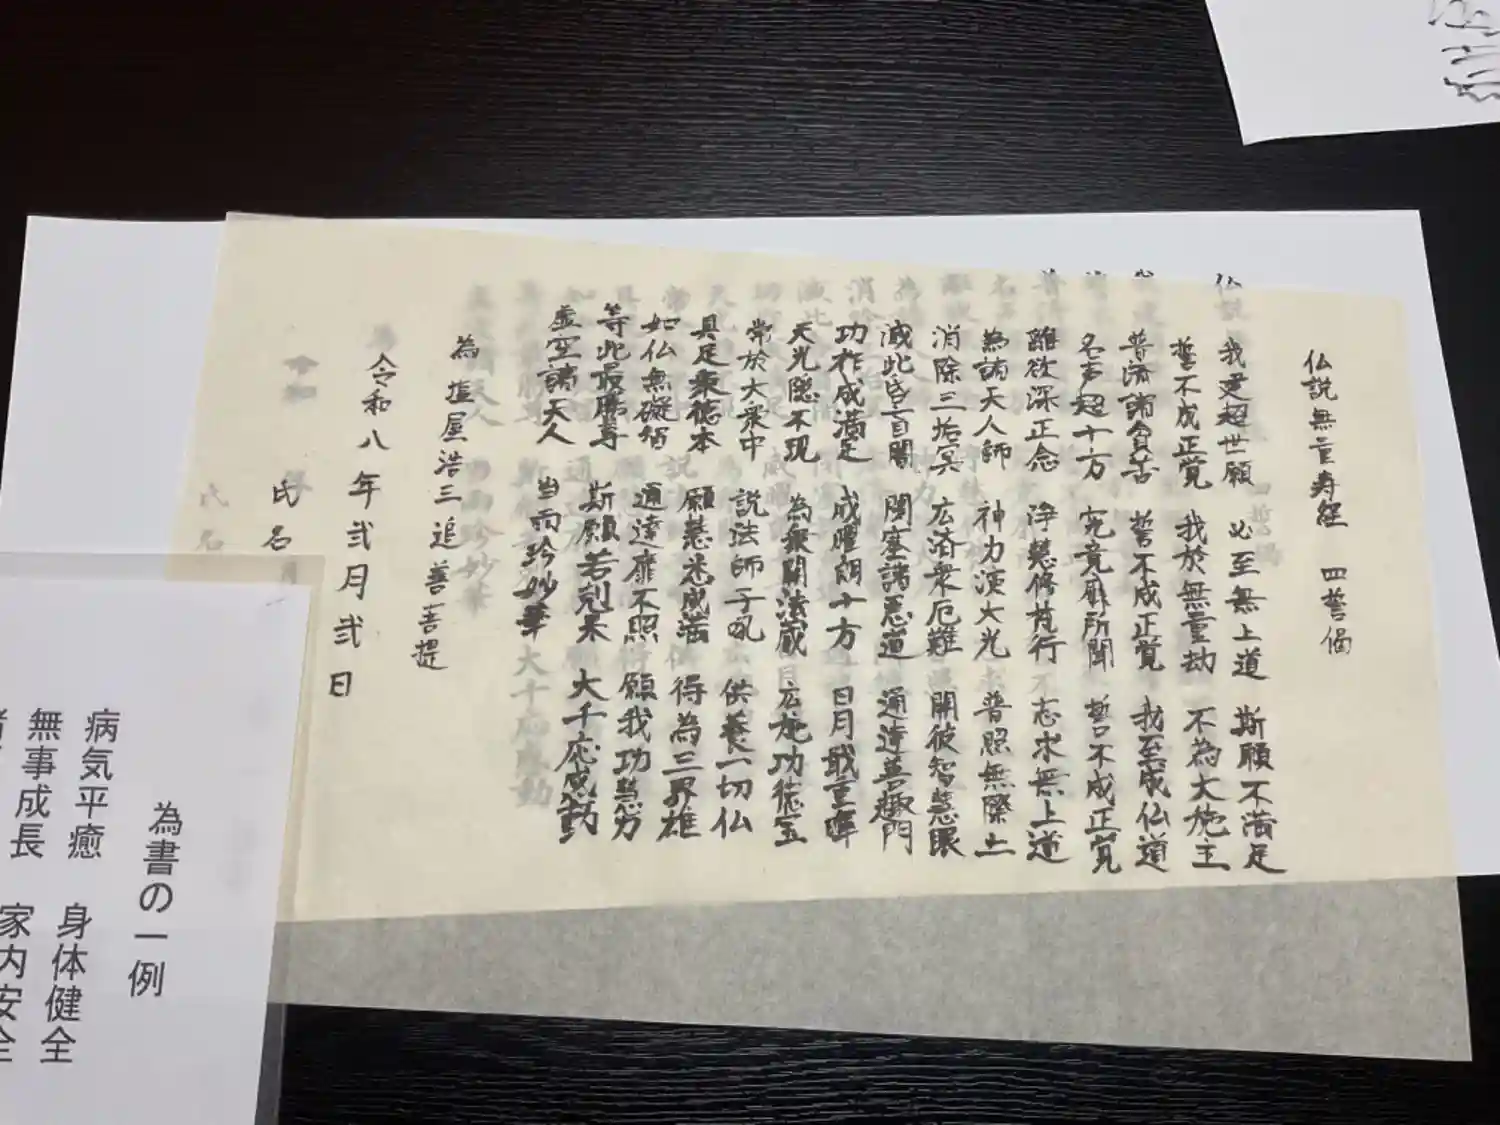 仏説無量寿経 四誓偈
我建超世願 必至無上道 斯願不満足
誓不成正覚 我於無量劫 不為大施主
普済諸貧苦 誓不成正覚 我至成仏道
名声超十方 究竟靡所聞 誓不成正覚
離欲深正念 浄慧修梵行 志求無上道
為諸天人師 神力演大光 普照無際土
消除三垢冥 広済衆厄難 開彼智慧眼
滅此昏盲闇 閉塞諸悪道 通達善趣門
功祚成満足 威曜朗十方 日月戢重暉
天光隠不現 為衆開法蔵 広施功徳宝
常於大衆中 説法師子吼 供養一切仏
具足衆徳本 願慧悉成満 得為三界雄
如仏無礙智 通達靡不照 願我功慧力
等此最勝尊 斯願若剋果 大千応感動
虚空諸天人 当雨珍妙華
為 塩屋浩三 追善菩提
令和八年弐月弐日
氏名
為書の一例
病気平癒 身体健全
無事成長 家内安全